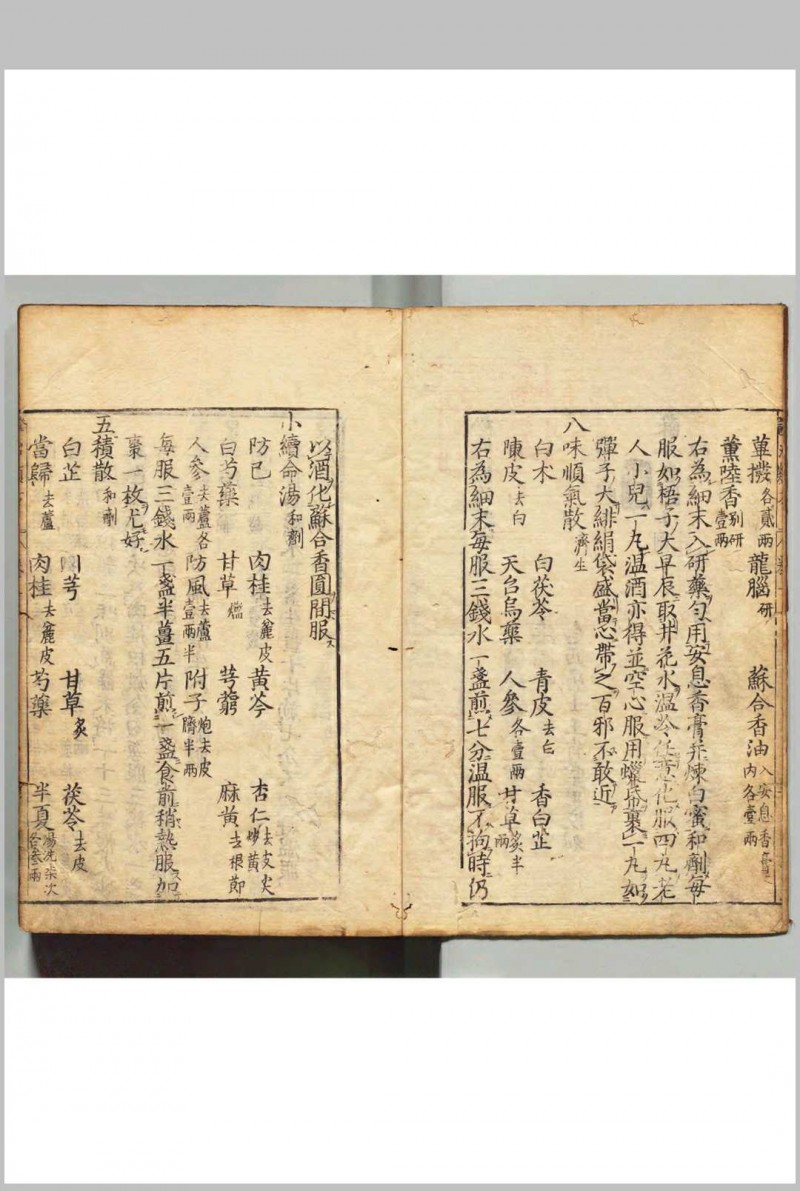 蓽撥各貳兩 龍腦研 蘇合香油入安息香膏內各壹兩
薰陸香別研壹兩
右為細末入研藥勻用安息香膏并煉白蜜和劑每
服如梧子大早辰取井花水溫冷任意化服四丸老
人小兒一丸溫酒亦得並空心服用蠟帋裹一丸如
彈子大緋絹袋盛當心帶之百邪不敢近
八味順氣散濟生
白朮 白茯苓 青皮去白 香白芷
陳皮去白 天台烏藥 人參各壹兩 甘草炙半兩
右為細末每服三錢水一盞煎七分溫服不拘時仍
以酒化蘇合香圓間服
小續命湯和劑
防已 肉桂去麁皮 黃芩 杏仁去皮尖炒黃
白芍藥 甘草 芎藭 麻黃去根節
人參去蘆各壹兩 防風去蘆壹兩半 附子炮去皮臍半兩
每服三錢水一盞半薑五片煎一盞食前稍熱服加
棗一枚尤好
五積散和劑
白芷 川芎 甘草炙 茯苓去皮
當歸去蘆 肉桂去麁皮 芍藥 半夏湯洗柒次各叄兩